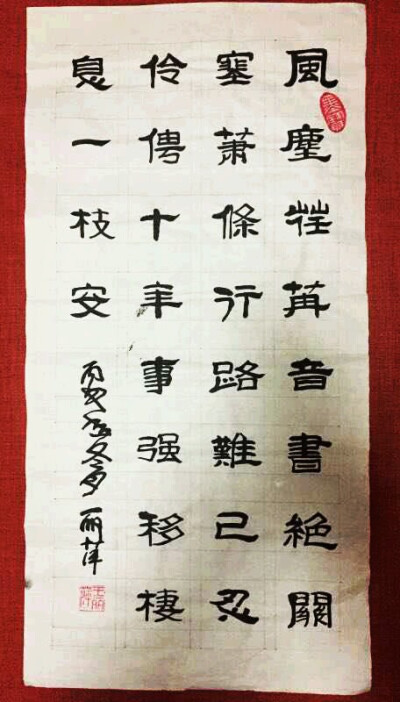 風塵荏苒音書絶關
塞蕭條行路難已忍
伶俜十年事强移棲
息一枝安
冬月 丽萍